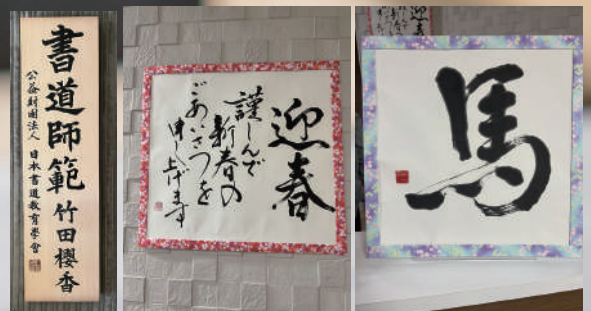 書道師範 竹田櫻香
公益財團法人 日本書道教育學會
迎春
謹しんで
新春の
ごあいさつを
申し上げます
馬
迎